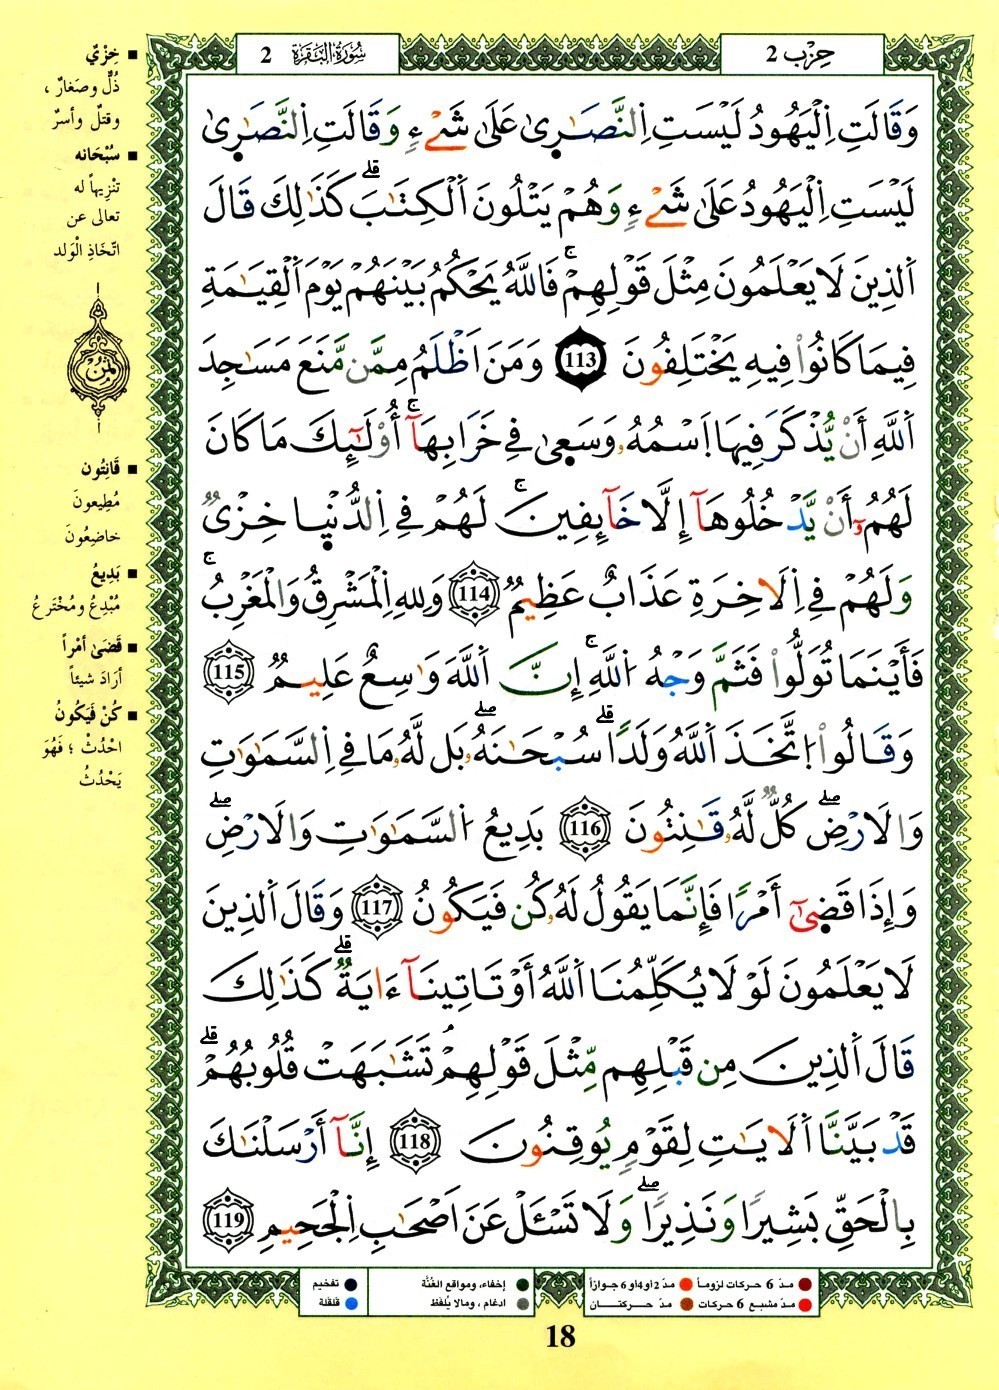 سُورَةُ البَقَرَةِ 2
حِزْب 2
وَقَالَتِ اِ۬لْيَهُودُ لَيْسَتِ اِ۬لنَّصَٰر۪ىٰ عَلَىٰ شَےْءٖ وَقَالَتِ اِ۬لنَّصَٰر۪ىٰ
لَيْسَتِ اِ۬لْيَهُودُ عَلَىٰ شَےْءٖ وَهُمْ يَتْلُونَ اَ۬لْكِتَٰبَۖ كَذَٰلِكَ قَالَ
اَ۬لذِينَ لَا يَعْلَمُونَ مِثْلَ قَوْلِهِمْۚ فَاللَّهُ يَحْكُمُ بَيْنَهُمْ يَوْمَ اَ۬لْقِيَٰمَةِ
فِيمَا كَانُواْ فِيهِ يَخْتَلِفُونَ 113 وَمَنَ اَظْلَمُ مِمَّن مَّنَعَ مَسَٰجِدَ
اَ۬للَّهِ أَنْ يُّذْكَرَ فِيهَا اَ۪سْمُهُۥ وَسَع۪ىٰ فِے خَرَابِهَآۚ أُوْلَٰٓئِكَ مَا كَانَ
لَهُمُۥٓ أَنْ يَّدْخُلُوهَآ إِلَّا خَآئِفِينَۚ لَهُمْ فِے اِ۬لدُّنْي۪ا خِزْيٌ
وَلَهُمْ فِے اِ۬لَاخِرَةِ عَذَابٌ عَظِيمٌ 114 وَلِلهِ اِ۬لْمَشْرِقُ وَالْمَغْرِبُۚ
فَأَيْنَمَا تُوَلُّواْ فَثَمَّ وَجْهُ اُ۬للَّهِۚ إِنَّ اَ۬للَّهَ وَٰسِعٌ عَلِيمٌ 115
وَقَالُواْ اُ۪تَّخَذَ اَ۬للَّهُ وَلَداٗۗ سُبْحَٰنَهُۥۖ بَل لَّهُۥ مَا فِے اِ۬لسَّمَٰوَٰتِ
وَالَارْضِۖ كُلٌّ لَّهُۥ قَٰنِتُونَ 116 بَدِيعُ اُ۬لسَّمَٰوَٰتِ وَالَارْضِۖ
وَإِذَا قَض۪ىٰٓ أَمْراٗ فَإِنَّمَا يَقُولُ لَهُۥ كُن فَيَكُونُ 117 وَقَالَ اَ۬لذِينَ
لَا يَعْلَمُونَ لَوْلَا يُكَلِّمُنَا اَ۬للَّهُ أَوْ تَاتِينَآ ءَايَةٌۗ كَذَٰلِكَ
قَالَ اَ۬لذِينَ مِن قَبْلِهِم مِّثْلَ قَوْلِهِمْۘ تَشَٰبَهَتْ قُلُوبُهُمْۗ
قَدْ بَيَّنَّا اَ۬لَايَٰتِ لِقَوْمٍ يُوقِنُونَ 118 إِنَّآ أَرْسَلْنَٰكَ
بِالْحَقِّ بَشِيراٗ وَنَذِيراٗۖ وَلَا تَسْـَٔلْ عَنَ اَصْحَٰبِ اِ۬لْجَحِيمِ 119
خِزْيٌ
ذُلٌّ وصَغارٌ ،
وقتلٌ وأسرٌ
سُبْحَانه
تنْزِيهاً له
تعالى عن
اتّخَاذِ الْوَلد
ثُمُن
قَانِتُون
مُطِيعونَ
خاضِعُونَ
بَدِيعُ
مُبْدِعُ ومُخْتَرِعُ
قَضَىٰ أمْراً
أرَادَ شيئاً
كُنْ فَيَكُونُ
احْدُثْ ؛ فَهُوَ
يَحْدُثُ
مدّ 6 حركات لزوماً مدّ 2 أو 4 أو 6 جوازاً إخفاء، ومواقع الغُنَّة تفخيم
مدّ مشبع 6 حركات مدّ حركتان ادغام ، ومالا يُلفَظ قلقلة
18